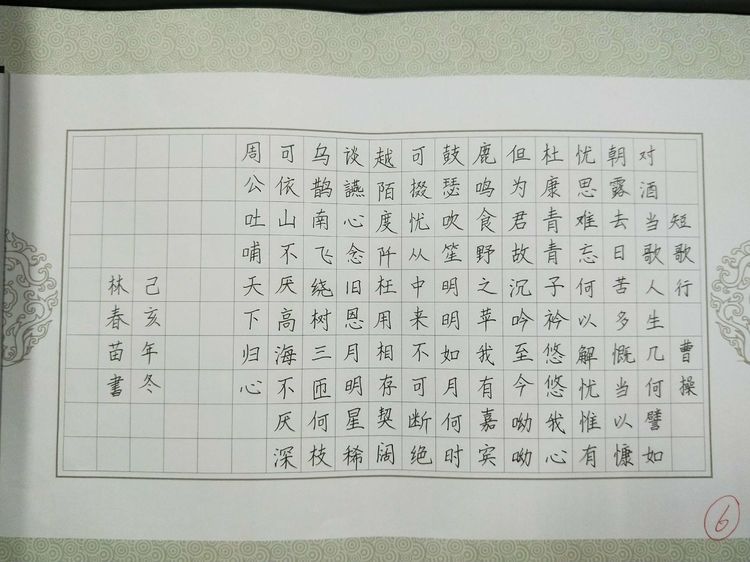 短歌行 曹操
对酒当歌人生几何譬如
朝露去日苦多慨当以慷
忧思难忘何以解忧惟有
杜康青青子衿悠悠我心
但为君故沉吟至今呦呦
鹿鸣食野之苹我有嘉宾
鼓瑟吹笙明明如月何时
可掇忧从中来不可断绝
越陌度阡枉用相存契阔
谈讌心念旧恩月明星稀
乌鹊南飞绕树三匝何枝
可依山不厌高海不厌深
周公吐哺天下归心
己亥年冬
林春苗書
6